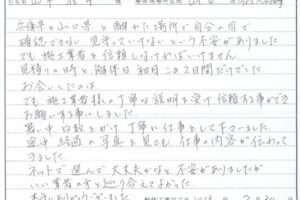 兵庫県と山口県と離れた場所で自分の目で
確認できない 見守っていけないという不安がありました
でも施工業者を信頼しなければいけません
見積りの時と解体日初日この2日間だけでした
お会いしたのは
でも施工業者様の丁寧な説明を受け信頼する事ができ
お願いする事にしました
暑い中日数をかけ丁寧に仕事をして下さいました
途中経過の写真を見ても仕事の内容が伝わって
きました
ネットで選んで大丈夫かなと不安がありましたが
いい業者の方と巡り会えてよかった